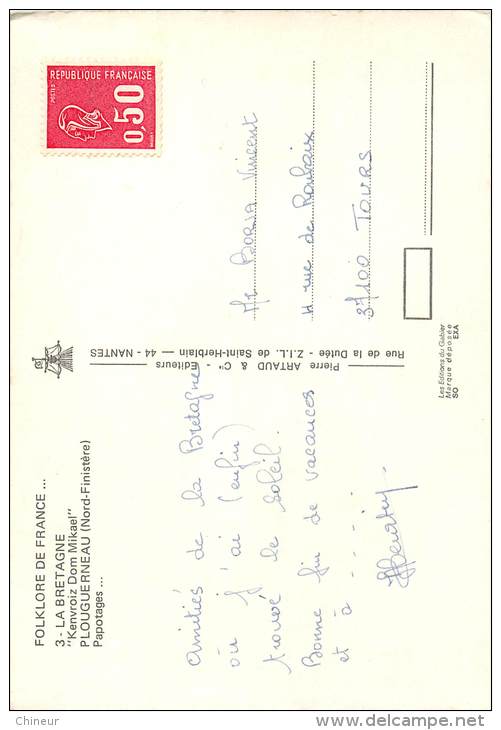 FOLKLORE DE FRANCE ...
3 - LA BRETAGNE
"Kenvroiz Dom Mikael"
PLOUGUERNEAU (Nord-Finistère)
Papotages ...
Amitiés de la Bretagne
où j'ai (enfin)
trouvé le soleil.
Bonne fin de vacances
et à - - - -
Pierre ARTAUD & Cie - Editeurs
Rue de la Dutée - Z.I.L. de Saint-Herblain — 44 - NANTES
POSTES
REPUBLIQUE FRANÇAISE
0,50
Mr BORJA Vincent
4 rue de Roubaix
37100 TOURS
Les Editions du Gabier
Marque déposée
SO EXA
Chineur
delcampe.net